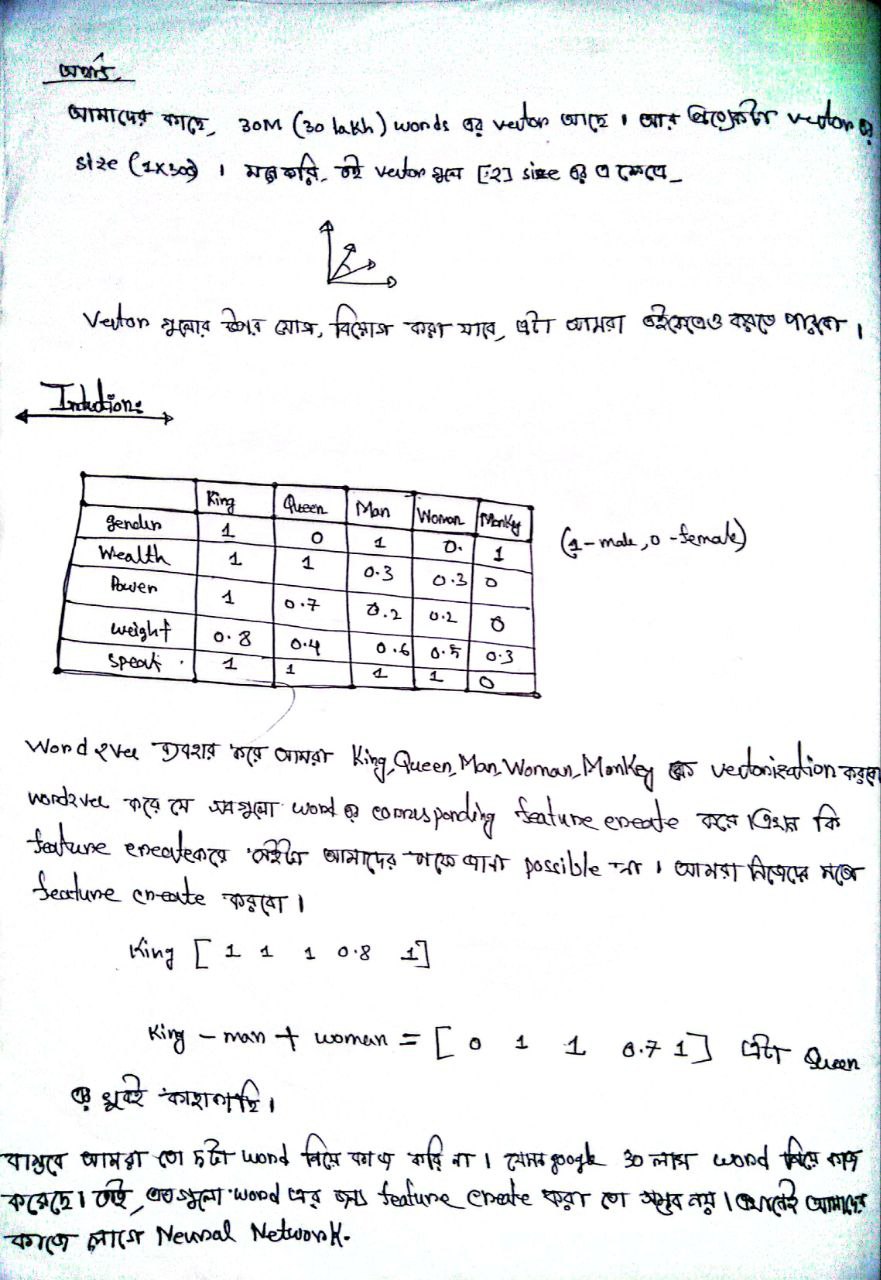 অর্থাৎ,
আমাদের কাছে, 30M (30 lakh) words এর vector আছে । আর প্রত্যেকটা vector এর
size (1x300) । মনে করি, ঐ vector গুলো [:2] size এর এ ক্ষেত্রে
Vector গুলোর উপর যোগ, বিয়োগ করা যাবে, এটা আমরা এইক্ষেত্রেও করতে পারবো ।
Intution:
King Queen Man Woman Monkey
gender 1 0 1 0. 1 (1-male, 0-female)
Wealth 1 1 0.3 0.3 0
Power 1 0.7 0.2 0.2 0
weight 0.8 0.4 0.6 0.5 0.3
Speak 1 1 1 1 0
Word2vec ব্যবহার করে আমরা King, Queen, Man, Woman, Monkey কে vectorization করবো
word2vec করে সে সবগুলো word এর corresponding feature create করে । এখন কি
feature create করে সেইটা আমাদের পক্ষে জানা possible না । আমরা নিজেদের মতো
feature create করবো ।
King [ 1 1 1 0.8 1]
King - man + woman = [ 0 1 1 0.7 1] এটা Queen
এর খুবই কাছাকাছি ।
বাস্তবে আমরা তো ৫টা word নিয়ে কাজ করি না । যেমন google 30 লাখ word নিয়ে কাজ
করেছে । তাই, এতগুলো word এর জন্য feature create করা তো সম্ভব নয় । এখানেই আমাদের
কাজে লাগে Neural Network.